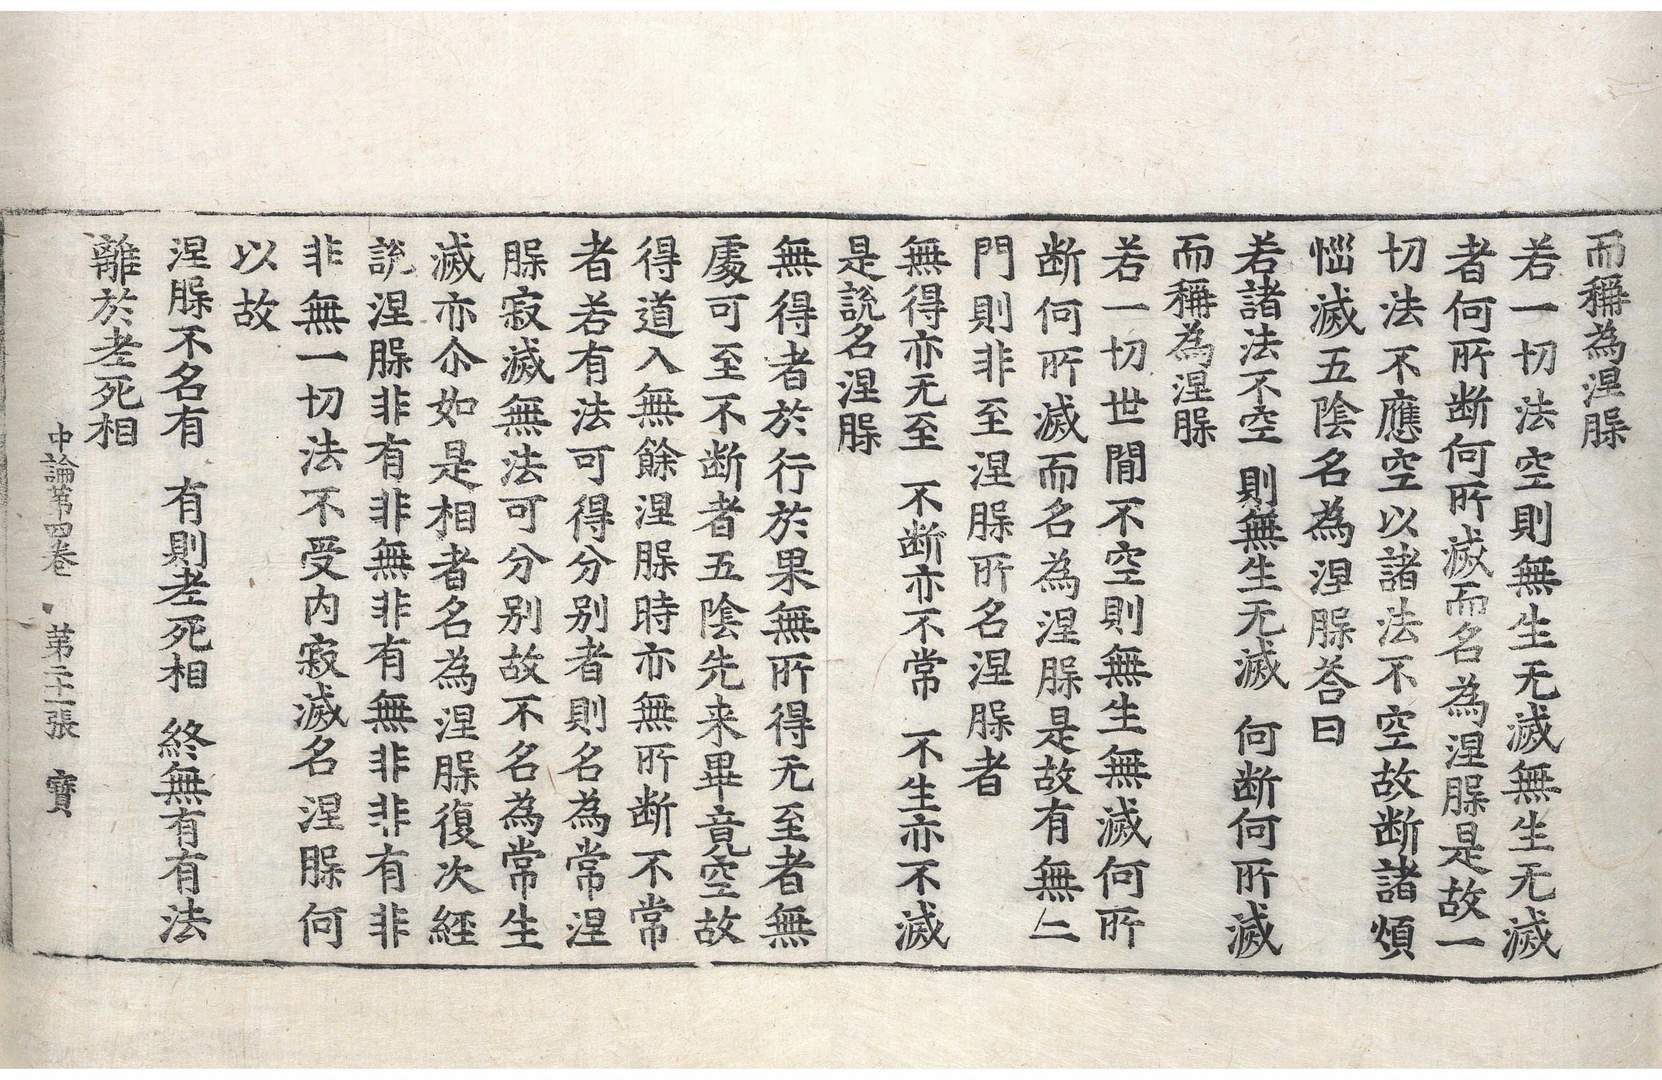 而稱為涅槃
若一切法空則無生无滅無生无滅
者何所断何所滅而名為涅槃是故一
切法不應空以諸法不空故断諸煩
惱滅五陰名為涅槃荅曰
若諸法不空 則無生无滅 何断何所滅
而稱為涅槃
若一切世閒不空則無生無滅何所
断何所滅而名為涅槃是故有無二
門則非至涅槃所名涅槃者
無得亦无至 不断亦不常 不生亦不滅
是說名涅槃
無得者於行於果無所得无至者無
處可至不断者五陰先来畢竟空故
得道入無餘涅槃時亦無所断不常
者若有法可得分别者則名為常涅
槃寂滅無法可分别故不名為常生
滅亦尒如是相者名為涅槃復次經
說涅槃非有非無非有無非非有非
非無一切法不受内寂滅名涅槃何
以故
涅槃不名有 有則老死相 終無有有法
離於老死相
中論第四卷 第二十張 寶